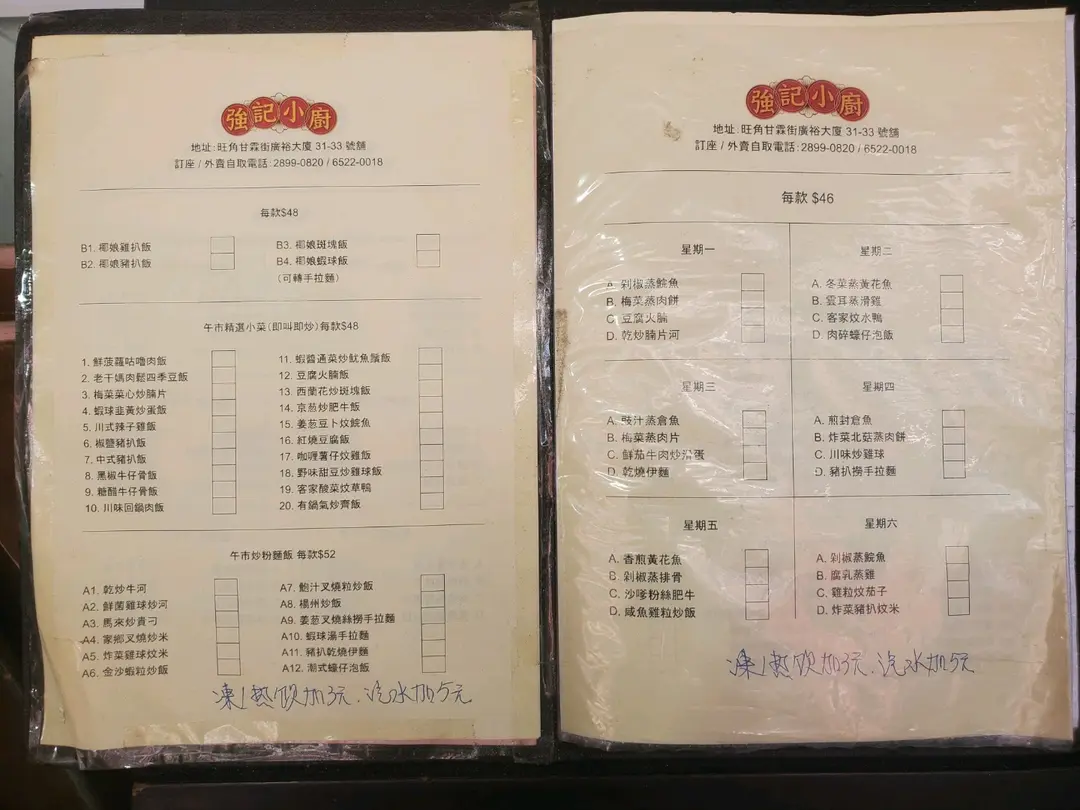 強記小廚
地址:旺角甘霖街廣裕大廈 31-33 號舖
訂座 / 外賣自取電話:2899-0820 / 6522-0018
每款$48
B1. 椰娘雞扒飯
B2. 椰娘豬扒飯
B3. 椰娘斑塊飯
B4. 椰娘蝦球飯
(可轉手拉麵)
午市精選小菜(即叫即炒)每款$48
1. 鮮菠蘿咕嚕肉飯
2. 老干媽肉鬆四季豆飯
3. 梅菜菜心炒腩片
4. 蝦球韭黃炒蛋飯
5. 川式辣子雞飯
6. 椒鹽豬扒飯
7. 中式豬扒飯
8. 黑椒牛仔骨飯
9. 糖醋牛仔骨飯
10. 川味回鍋肉飯
11. 蝦醬通菜炒魷魚鬚飯
12. 豆腐火腩飯
13. 西蘭花炒斑塊飯
14. 京葱炒肥牛飯
15. 姜葱豆卜炆鯇魚
16. 紅燒豆腐飯
17. 咖喱薯仔炆雞飯
18. 野味甜豆炒雞球飯
19. 客家酸菜炆草鴨
20. 有鍋氣炒齊飯
午市炒粉麵飯 每款$52
A1. 乾炒牛河
A2. 鮮菌雞球炒河
A3. 馬來炒貴刁
A4. 家鄉叉燒炒米
A5. 炸菜雞球炆米
A6. 金沙蝦粒炒飯
A7. 鮑汁叉燒粒炒飯
A8. 楊州炒飯
A9. 姜葱叉燒絲撈手拉麵
A10. 蝦球湯手拉麵
A11. 豬扒乾燒伊麵
A12. 潮式蠔仔泡飯
凍/熱飲加3元.汽水加5元
強記小廚
地址:旺角甘霖街廣裕大廈 31-33 號舖
訂座 / 外賣自取電話:2899-0820 / 6522-0018
每款 $46
星期一
A. 剁椒蒸鯇魚
B. 梅菜蒸肉餅
C. 豆腐火腩
D. 乾炒腩片河
星期二
A. 冬菜蒸黃花魚
B. 雲耳蒸滑雞
C. 客家炆水鴨
D. 肉碎蠔仔泡飯
星期三
A. 豉汁蒸倉魚
B. 梅菜蒸肉片
C. 鮮茄牛肉炒滑蛋
D. 乾燒伊麵
星期四
A. 煎封倉魚
B. 炸菜北菇蒸肉餅
C. 川味炒雞球
D. 豬扒撈手拉麵
星期五
A. 香煎黃花魚
B. 剁椒蒸排骨
C. 沙嗲粉絲肥牛
D. 咸魚雞粒炒飯
星期六
A. 剁椒蒸鯇魚
B. 腐乳蒸雞
C. 雞粒炆茄子
D. 炸菜豬扒炆米
凍/熱飲加3元.汽水加5元